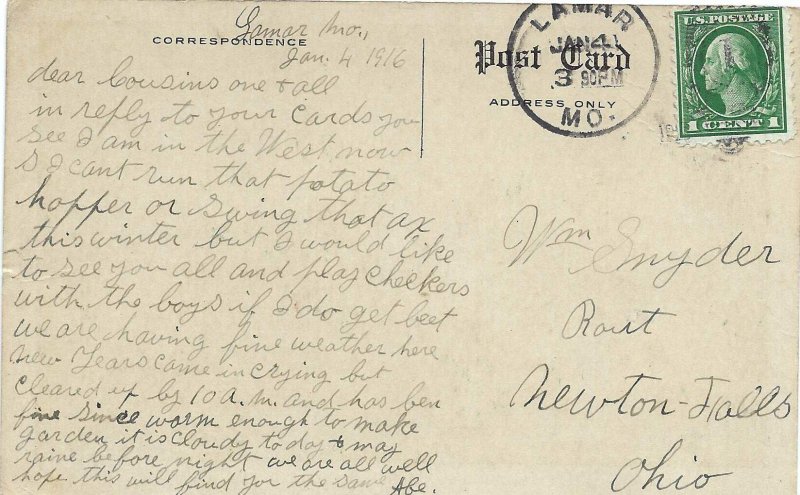 Lamar Mo.,
CORRESPONDENCE
Jan. 4 1916
dear Cousins one & all
in reply to your cards you
see I am in the West now
S I cant run that potato
hopper or swing that ax
this winter but I would like
to see you all and play checkers
with the boys if I do get beet
we are having fine weather here
new Years came in crying but
cleared up by 10 a.m. and has ben
fine since worm enough to make
garden it is cloudy to day & may
raine before night we are all well
hope this will find you the same Abe.
Post Card
ADDRESS ONLY
LAMAR
JAN 4
3 30PM
MO.
U.S. POSTAGE
1 CENT 1
Wm Snyder
Rout
Newton-Falls
Ohio